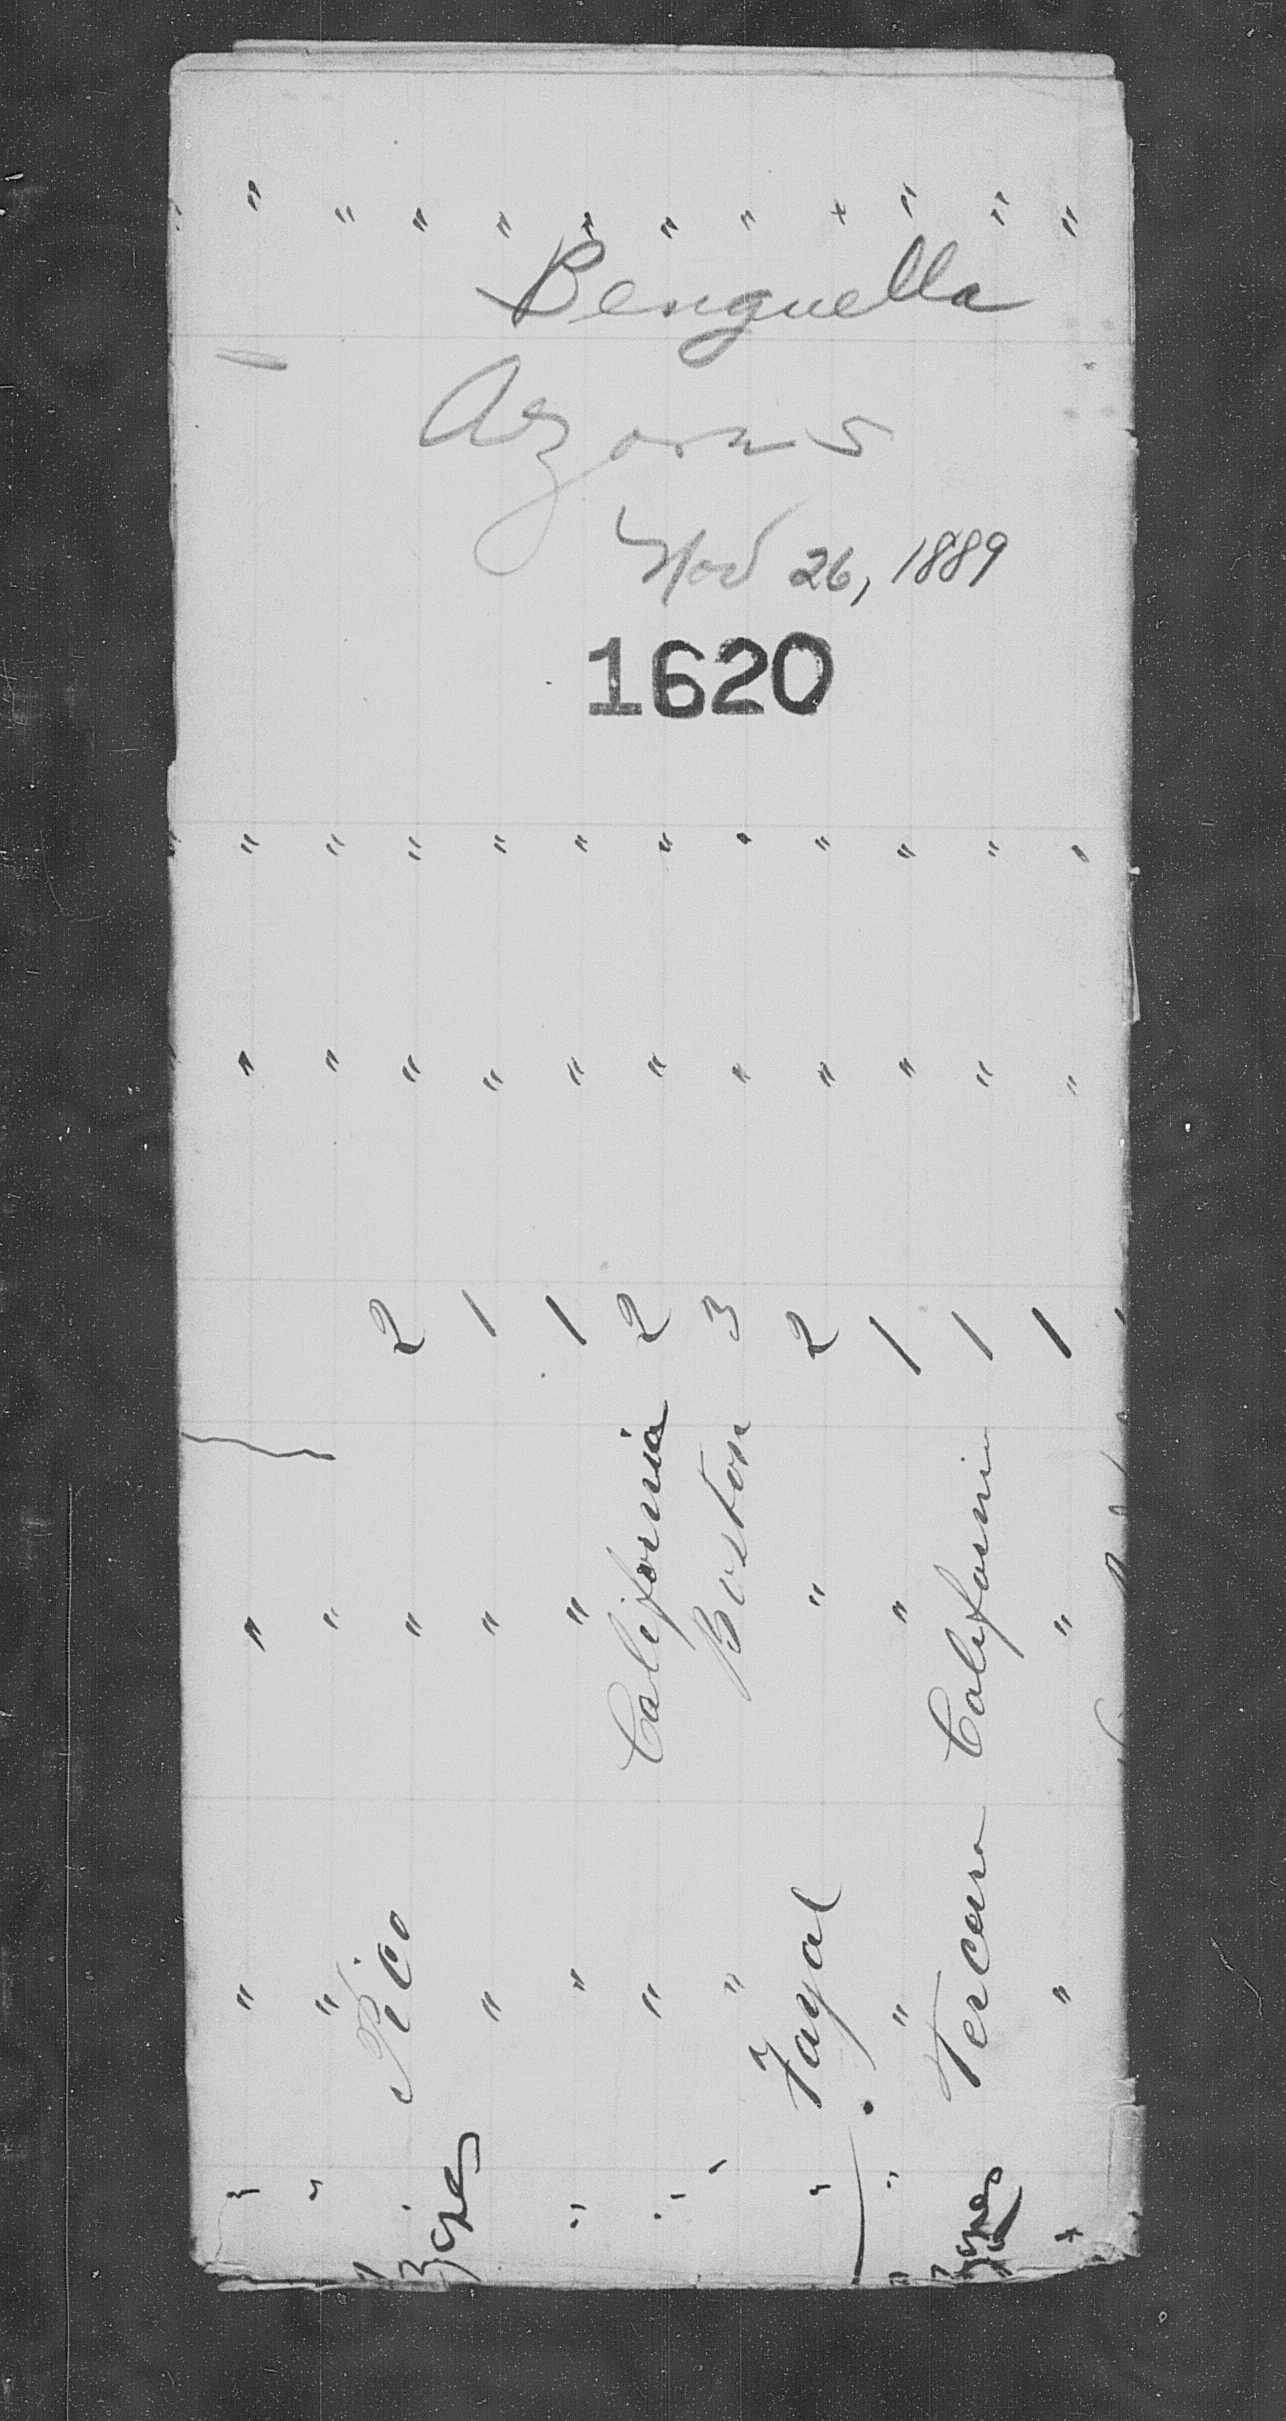 " " " " " " " " " " "
Benguella
Azores
Nov 26, 1889
1620
" " " " " " " " " " "
" " " " " " " " " " "
2 1 1 2 3 2 1 1 1
" " " " " California Boston " " California "
" " Pico " " " " Fayal " Terceira "